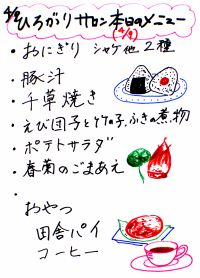 4/9 ひろがりサロン本日のメニュー
(4/9)
・おにぎり シャケ他2種
・豚汁
・千草焼き
・えび団子と竹の子、ふきの煮物
・ポテトサラダ
・春菊のごまあえ
・
おやつ
田舎パイ
コーヒー